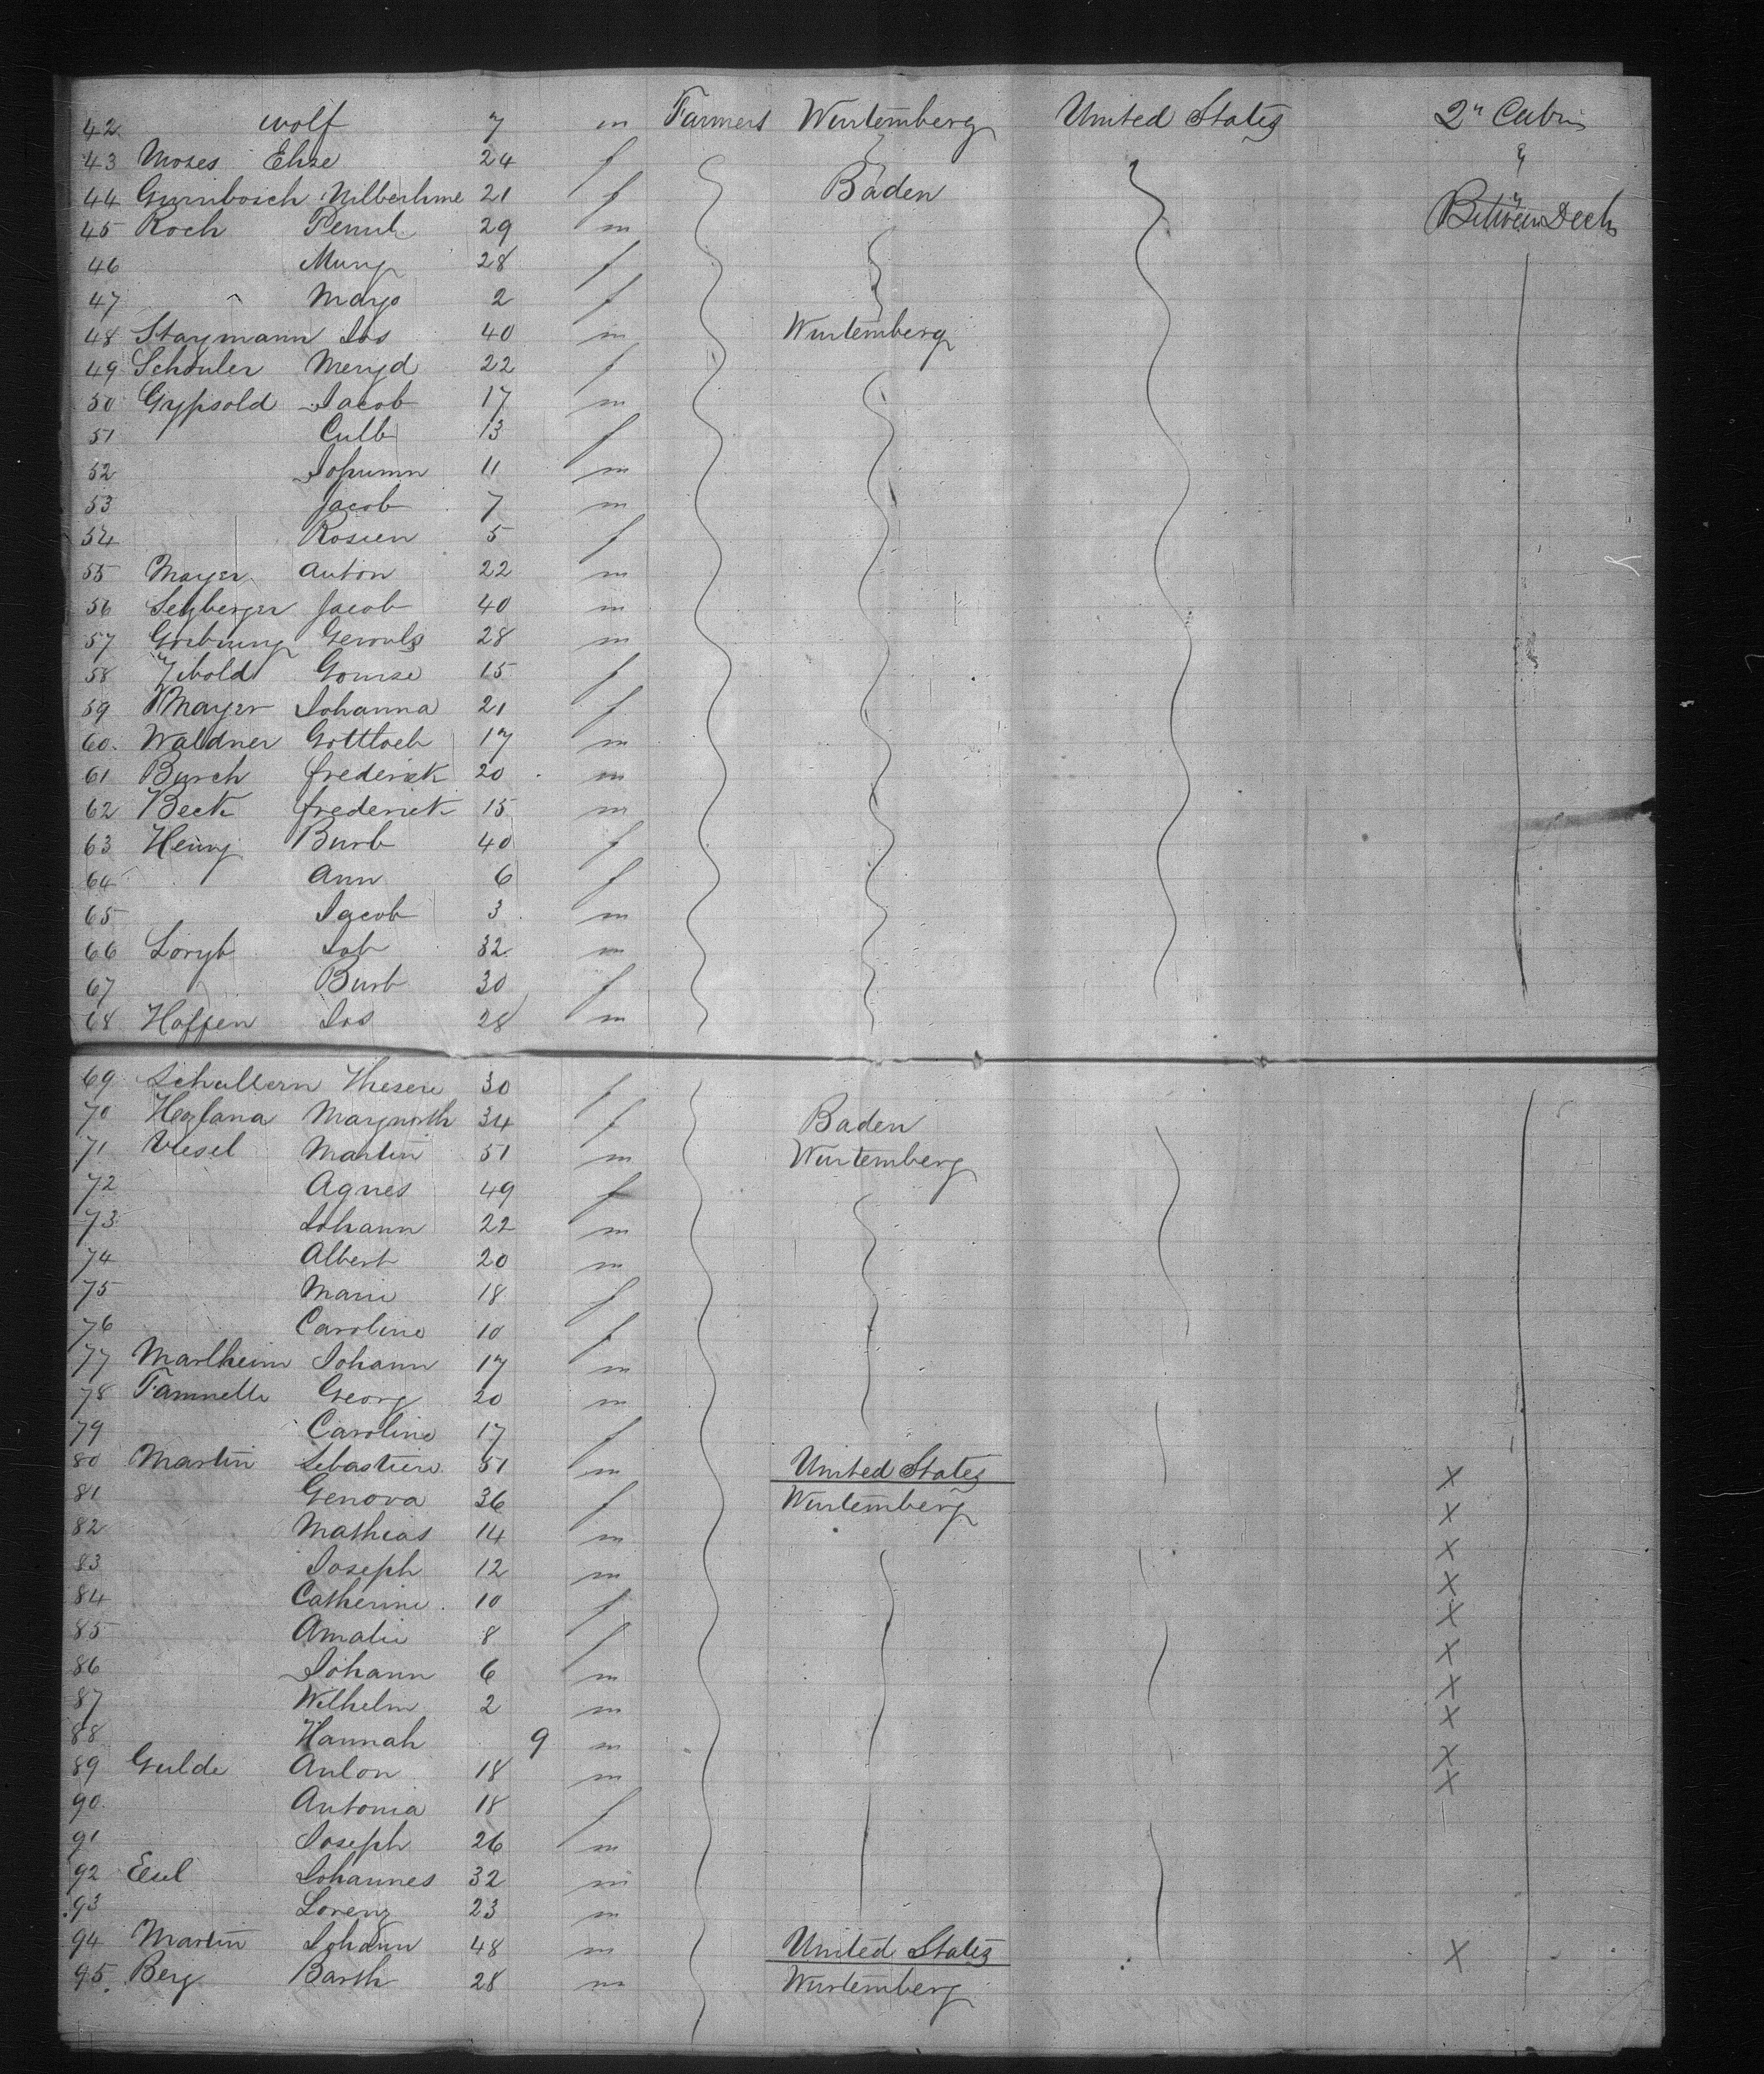 42 Wolf 7 m Farmers Wurtemberg United States 2n Cabin
43 Moses Elise 24 f &
44 Gurnbosch 21 f Baden Between Decks
45 Koch 29 m
46 28 f
47 " Mayo 2 f
48 Staymann Jos 40 m Wurtemberg
49 Schouler 22 f
50 Gypsold Jacob 17 m
51 13 f
52 Johumn 11 m
53 Jacob 7 m
54 Rosien 5 f
55 Mayer Anton 22 m
56 Setzberger Jacob 40 m
57 28 m
58 15 f
59 Mayer Johanna 21 f
60. Waldner Gottloeb 17 m
61 Burch frederick 20 m
62 Beck frederick 15 m
63 Henny Burb 40 f
64 Ann 6 f
65 Jacob 3 m
66 Loryb Job 32 m
67 Burb 30 f
68 Hoffen Jos 28 m
69 Schullern 30 f
70 34 f Baden
71 Viesel Martin 51 m Wurtemberg
72 Agnes 49 f
73 Johann 22 m
74 Albert 20 m
75 Marie 18 f
76 Caroline 10 f
77 Marlheim Johann 17 m
78 Georg 20 m
79 Caroline 17 f
80 Martin Sebastien 51 m United States X
81 Genova 36 f Wurtemberg X
82 Mathias 14 m X
83 Joseph 12 m X
84 Catherine 10 f X
85 Amalie 8 f X
86 Johann 6 m X
87 Wilhelm 2 m X
88 Hannah 9 m X
89 Gulde Anton 18 m X
90 Antonia 18 f
91 Joseph 26 m
92 Johannes 32 m
93 Lorenz 23 m
94 Martin Johann 48 m United States X
95. Berg Barth 28 m Wurtemberg